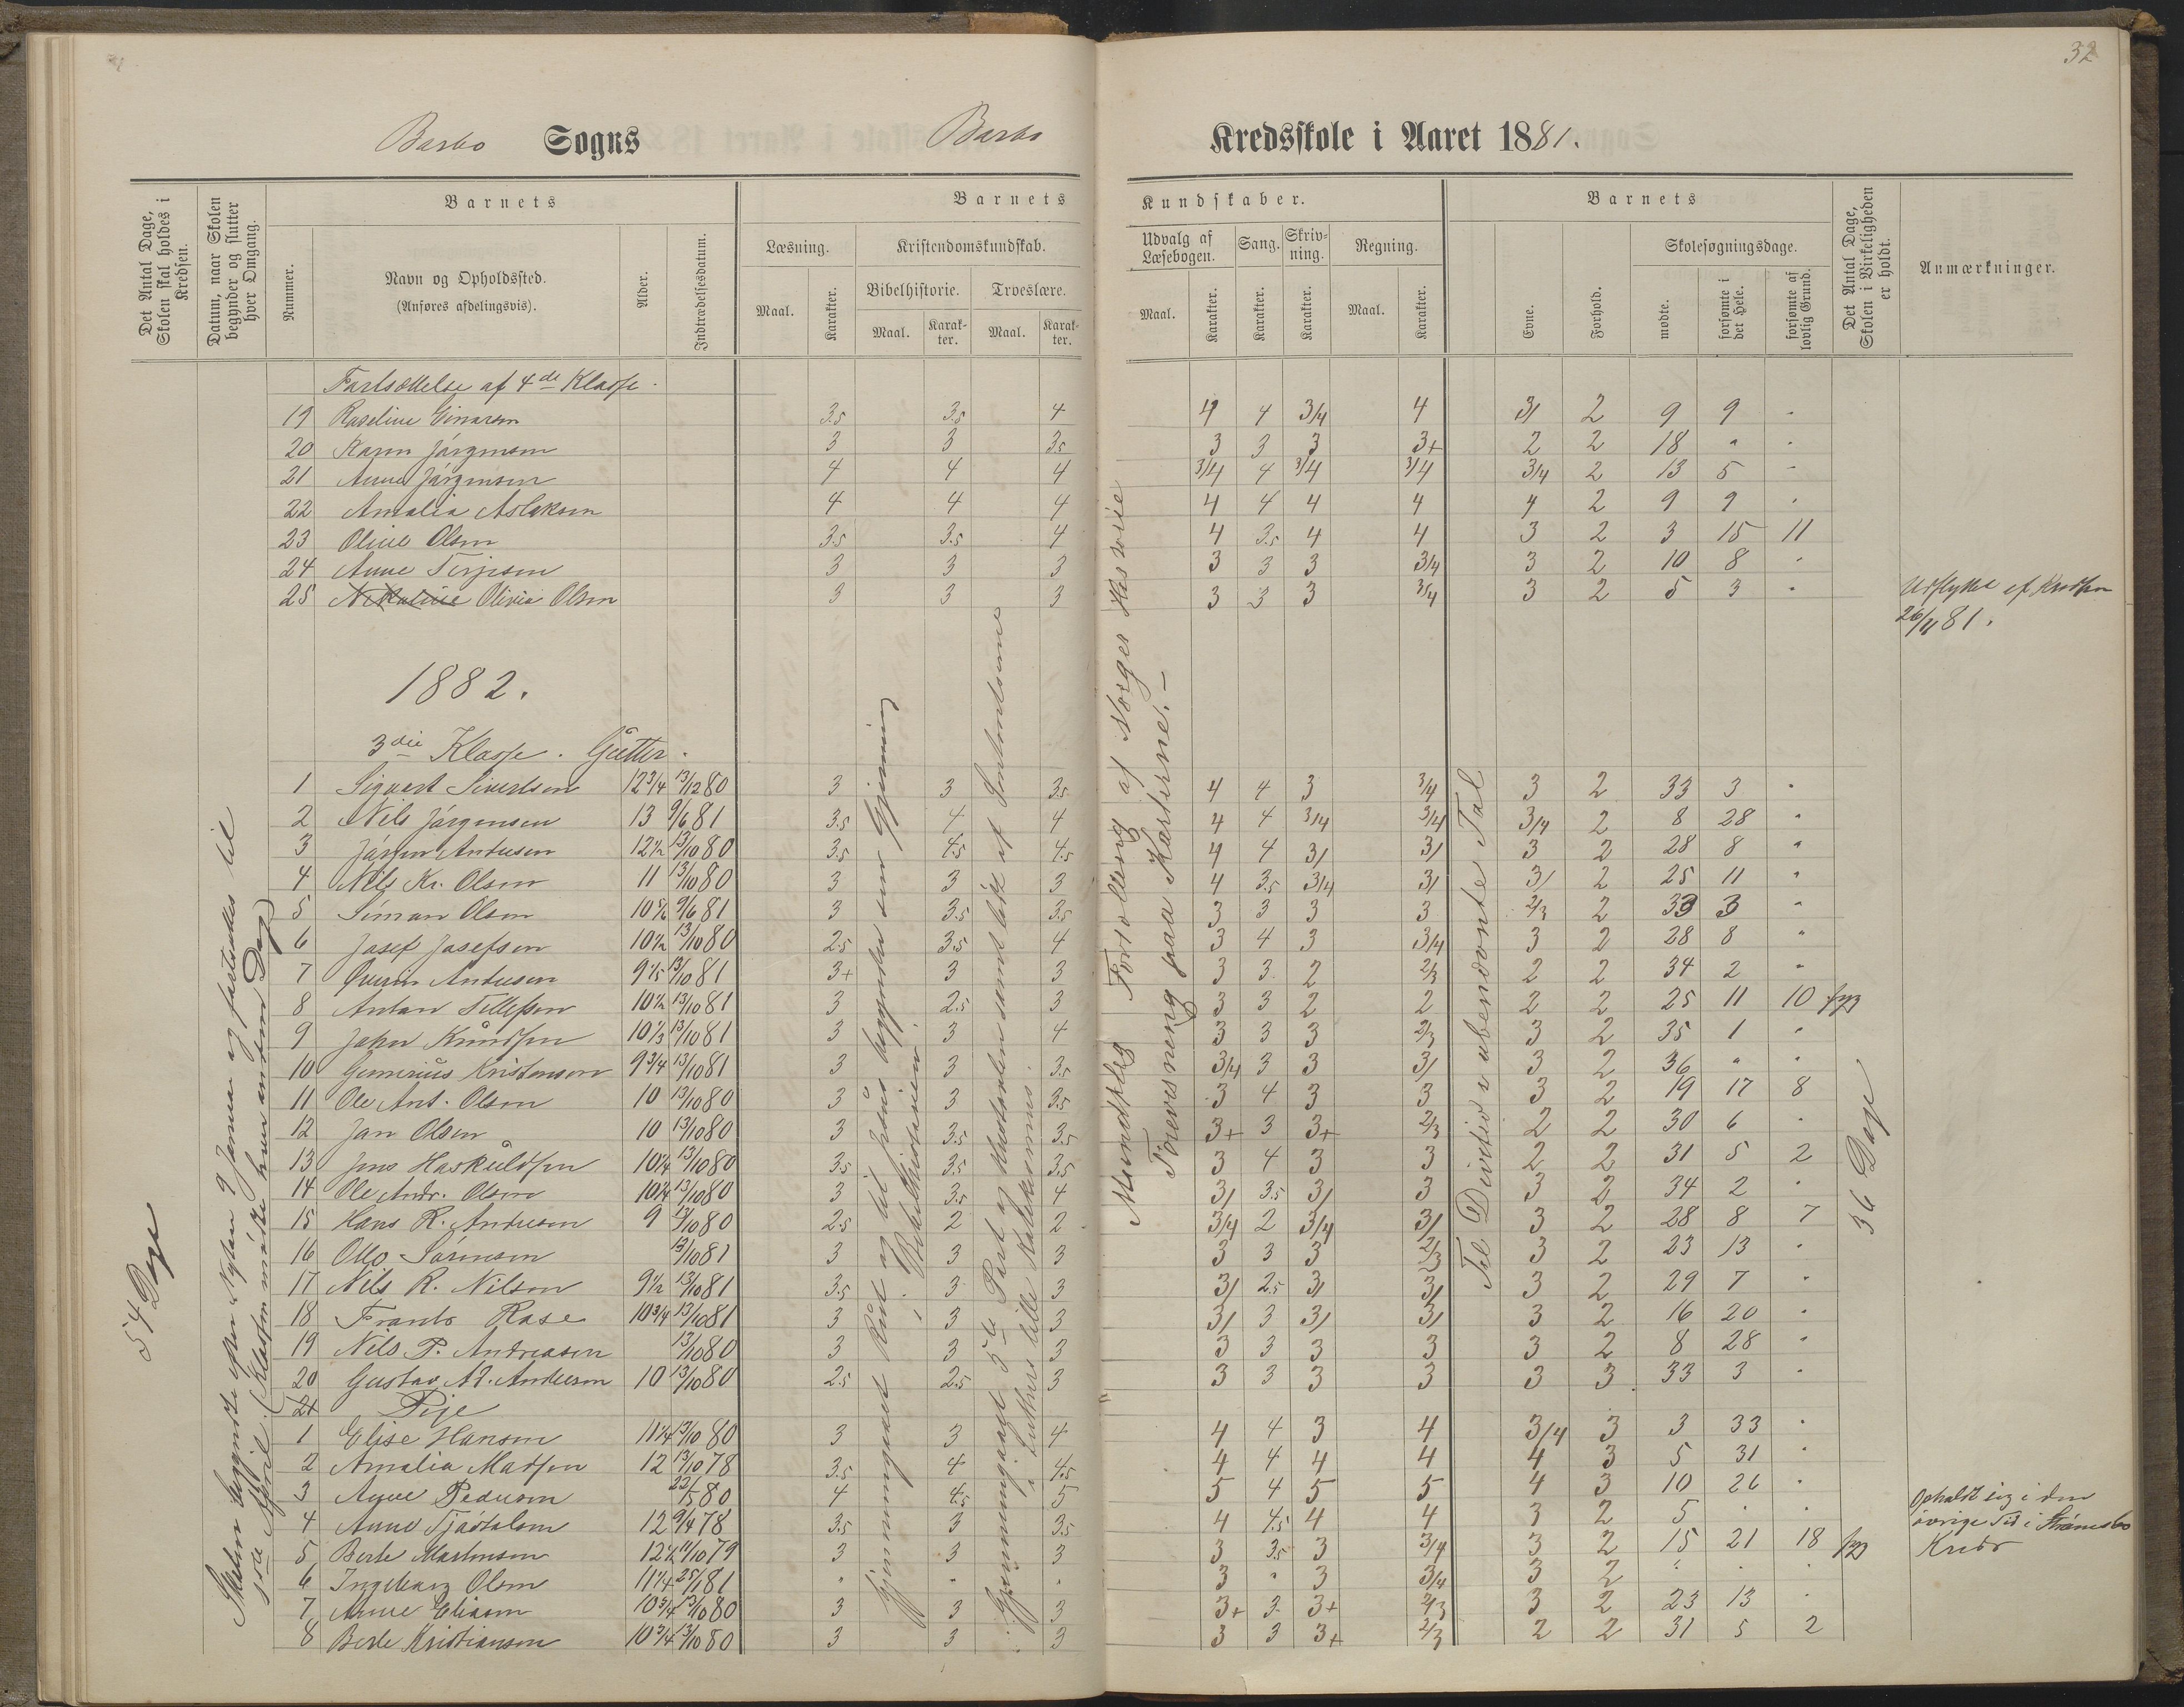 32
Barbo Sogns Barbo Kredsskole i Aaret 1881.
Det Antal Dage, Skolen skal holdes i Kredsen.
Datum, naar Skolen begynder og slutter hver Omgang.
Barnets
Nummer.
Navn og Opholdssted.
(Anføres afdelingsvis).
Alder.
Indtrædelsesdatum.
Barnets Kundskaber.
Læsning.
Maal.
Karakter.
Kristendomskundskab.
Bibelhistorie.
Maal.
Karakter.
Troeslære.
Maal.
Karakter.
Udvalg af Læsebogen.
Maal.
Karakter.
Sang.
Karakter.
Skrivning.
Karakter.
Regning.
Maal.
Karakter.
Barnets
Evne.
Forhold.
Skolesøgningsdage.
mødte.
forsømte i det Hele.
forsømte af lovlig Grund.
Det Antal Dage, Skolen i Virkeligheden er holdt.
Anmærkninger.
Fortsættelse af 4de Klasse.
19 Roseline Einarsen 3.5 3.5 4 4 4 3/4 4 3/ 2 9 9 "
20 Karen Jørgensen 3 3 3.5 3 3 3 3+ 2 2 18 " "
21 Anne Jørgensen 4 4 4 3/4 4 3/4 3/4 3/4 2 13 5 "
22 Amalia Aslaksen 4 4 4 4 4 4 4 4 2 9 9 "
23 Oline Olsen 3.5 3.5 4 4 3.5 4 4 3 2 3 15 11
24 Anne Terjesen 3 3 3 3 3 3 3/4 3 2 10 8 "
25 Olivia Olsen 3 3 3 3 3 3 3/4 3 2 5 3 " Udflyttet af Kredsen
26/11 81.
1882.
3die Klasse. Gutter.
1 Sigvert Sivertsen 12 3/4 13/12 80 3 3 3.5 4 4 3 3/4 3 2 33 3 "
2 Nils Jørgensen 13 9/6 81 3.5 4 4 4 4 3/4 3/4 3/4 2 8 28 "
3 Jørgen Andersen 12 1/2 13/10 80 3.5 4.5 4.5 4 4 3/ 3/ 3 2 28 8 "
4 Nils Kr. Olsen 11 13/10 80 3 3 3 4 3.5 3/4 3/ 3/ 2 25 11 "
5 Simon Olsen 9/6 81 3 3.5 3.5 3 3 3 3 2/3 2 33 3 "
6 Josef Josefsen 10 1/2 13/10 80 2.5 3.5 4 3 4 3 3/4 3 2 28 8 "
7 Andersen 13/10 81 3+ 3 3 3 3 2 2/3 2 2 34 2 "
8 Anton Tellefsen 10 1/2 13/10 81 3 2.5 3 3 3 2 2 2 2 25 11 10 syg
9 John Knudsen 10 1/3 13/10 81 3 3 4 3 3 3 2/3 3 2 35 1 "
10 Gunerius Kristensen 9 3/4 13/10 81 3 3 3.5 3/4 3 3 3/ 3 2 36 " "
11 Ole Ant. Olsen 10 13/10 80 3 3 3.5 3 4 3 3 3 2 19 17 8
12 Jan Olsen 10 13/10 80 3 3.5 3.5 3+ 3 3+ 2/3 2 2 30 6 "
13 Jens Haskuldsen 10 1/4 13/10 80 3.5 3.5 3.5 3 4 3 3 2 2 31 5 2
14 Ole Andr. Olsen 10 1/4 13/10 80 3 3.5 4 3/ 3.5 3/ 3 3 2 34 2 "
15 Hans R. Andersen 9 13/10 80 2.5 2 2 3/4 2 3/4 3/ 3 2 28 8 7
16 Otto Sørensen 13/10 81 3 3 3 3 3 3 2/3 3 2 23 13 "
17 Nils R. Nilsen 9 1/2 13/10 81 3.5 3 3 3/ 2.5 3/ 3/ 3 2 29 7 "
18 Frants Rase 10 3/4 13/10 81 3 3 3 3/ 3 3/ 3/ 3 2 16 20 "
19 Nils P. Andreasen 13/10 80 3 3 3 3 3 3 3 3 2 8 28 "
20 Gustav Ad. Andersen 10 13/10 80 2.5 2.5 3 3 3 3 3 3 3 33 3 "
21 Pige
1 Elise Hansen 11 1/4 13/10 80 3 3 4 4 4 3 4 3/4 3 3 33 "
2 Amalia Madsen 12 13/10 78 3.5 4 4.5 4 4 4 4 4 3 5 31 "
3 Anne Pedersen 80 4 4.5 5 5 4 5 5 4 3 10 26 "
4 Anne Tjøstolsen 12 9/4 78 3.5 3 3.5 4 4.5 4 4 3 2 5 " " Opholdt sig i den
øvrige Tid i Strømsbo
Kreds
5 Berte Martinsen 11/10 79 3 3 3 3 3.5 3 3/4 3 2 15 21 18 syg
6 Ingeborg Olsen 11 1/4 25/1 81 " " " 3 " 3 3/4 3 2 " " "
7 Anne Eliasen 10 3/4 13/10 80 3 3 3 3+ 3 3+ 2/3 3 2 23 13 "
8 Berte Kristiansen 10 3/4 13/10 80 3 3 3 3 3 3+ 2/3 2 2 31 5 2
54 Dage
Skolen begyndte efter Nytaar 9 Januar og fortsattes til
1ste April. (Klassen mødte hver anden Dag)
Gjennemgaaet Rud og til Jesus begynder sin Gjerning
i Bibelhistorien.
Gjennemgaaet 5te Part og Naadestolen samt lidt af Sakramenterne
i Luthers lille Katekismus.
Mundtlig Fortælling af Norges Historie
Forevisning paa Karterne. -
Til Division ubenævnte Tal
36 Dage